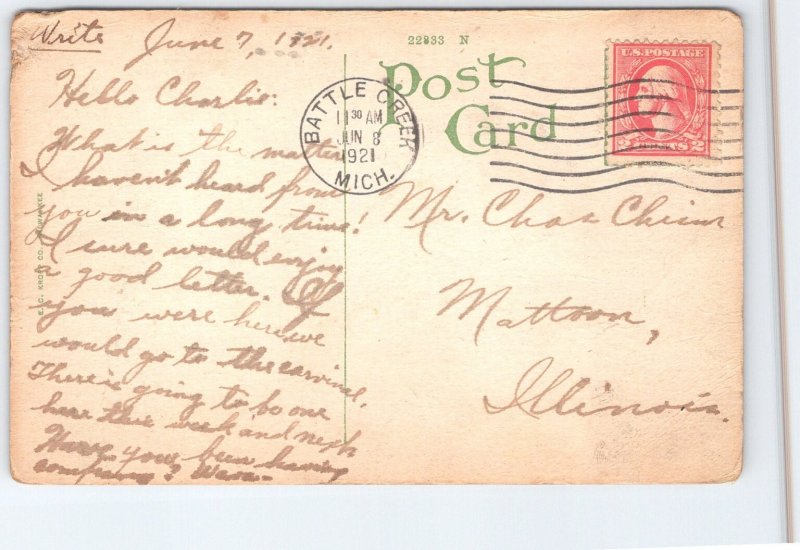 Write
June 7, 1921.
22833 N
Post Card
U.S. POSTAGE
2 CENTS 2
BATTLE CREEK
11 30 AM
JUN 8
1921
MICH.
Hello Charlie:
What is the matter
I haven't heard from
you in a long time!
I sure would enjoy
a good letter. If
you were here we
would go to the carnival.
There is going to be one
here this week and next
Have you been having
company?
Mr. Chas
Mattoon,
Illinois.
E.C. KROPP CO. MILWAUKEE